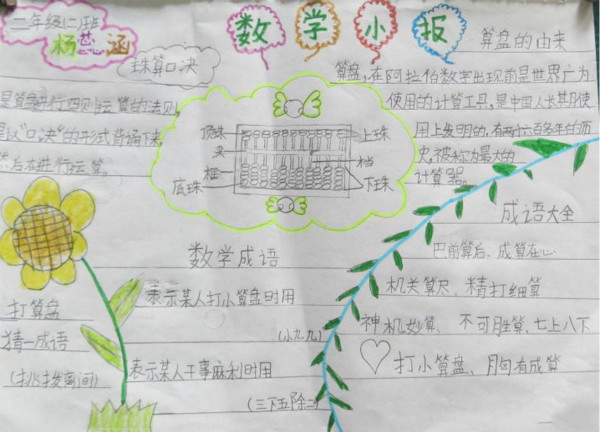 二年级(二)班
杨芸涵
数学小报
珠算口决
是算盘进行四则运算的法则,
是以"口决"的形式背诵下来,
然后在进行运算。
算盘的由来
算盘,在阿拉伯数字出现前是世界广为
使用的计算工具,是中国人长期使
用上发明的,有两六百多年的历
史,被称为最大的
计算器。
顶珠
梁
框
底珠
上珠
档
下珠
数学成语
表示某人打小算盘时用
(小九九)
表示某人干事麻利时用
(三下五除二)
打算盘
猜一成语
(挑拨离间)
成语大全
巴前算后、成算在心
机关算尽、精打细算
神机妙算、不可胜算,七上八下
打小算盘、胸有成算